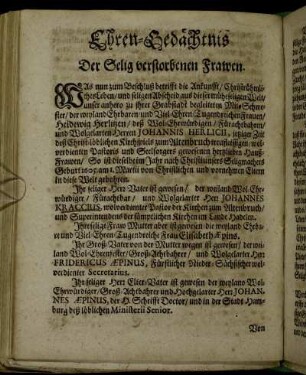 Ehren-Gedächtnis
Der Selig verstorbenen Frawen.
WAs nun zum Beschluß betrifft die Ankunfft / Christrühmli-
ches Leben / und seligen Abscheid aus dieser
unser anhero zu ihrer Grabstädt begleiteten Mit-Schwe-
ster / der weyland Ehrbaren und Viel Ehren Tugendreichen Frawen
Heidewig Herlichen / deß Wol-Ehrwürdigen / Fürachtbahren /
und Wolgelarten Herren JOHANNIS HERLICH, itziger Zeit
deß Christlöblichen Kirchspiels zum Altenbruch
verdienten Pastoris und Seelsorgers gewesenen hertzlieben Hauß-
Frawen / So ist dieselbe im Jahr nach Christi unsers Seligmachers
Geburt den 4. Martii von Christlichen und vornehmen Eltern
in diese Welt gebohren.
Ihr seliger Herr Vater ist gewesen / der weiland Wol-Ehr-
würdiger / Fürachtbar / und Wolgelarter Herr JOHANNES
KRAGGRIS, wolverdienter Pastor der Kirchen zum Altenbruch /
und Superintendens der sämptlichen Kirchen im Lande Hadelen.
Ihre selige Fraw Mutter aber ist gewesen die weyland Ehrba-
re und Viel-Ehren-Tugendreiche Fraw Elisabeth Æpins.
Ihr Groß-Vater von der Mutter wegen ist gewesen / der wei-
land Wol-Ehrenvester / Groß-Achtbahrer / und Wolgelarter Herr
FRIDERICUS ÆPINUS, Fürstlicher Nieder-Sächsischer wol-
verdienter Secretarius.
Ihr seliger Herr Elter-Vater ist gewesen der weyland Wol-
Ehrwürdiger / Groß-Achtbahrer und Hochgelarter Herr JOHAN-
NES ÆPINUS, der H. Schrifft Doctor / und in der Stadt Ham-
burg deß löblichen Ministerii Senior.
Von